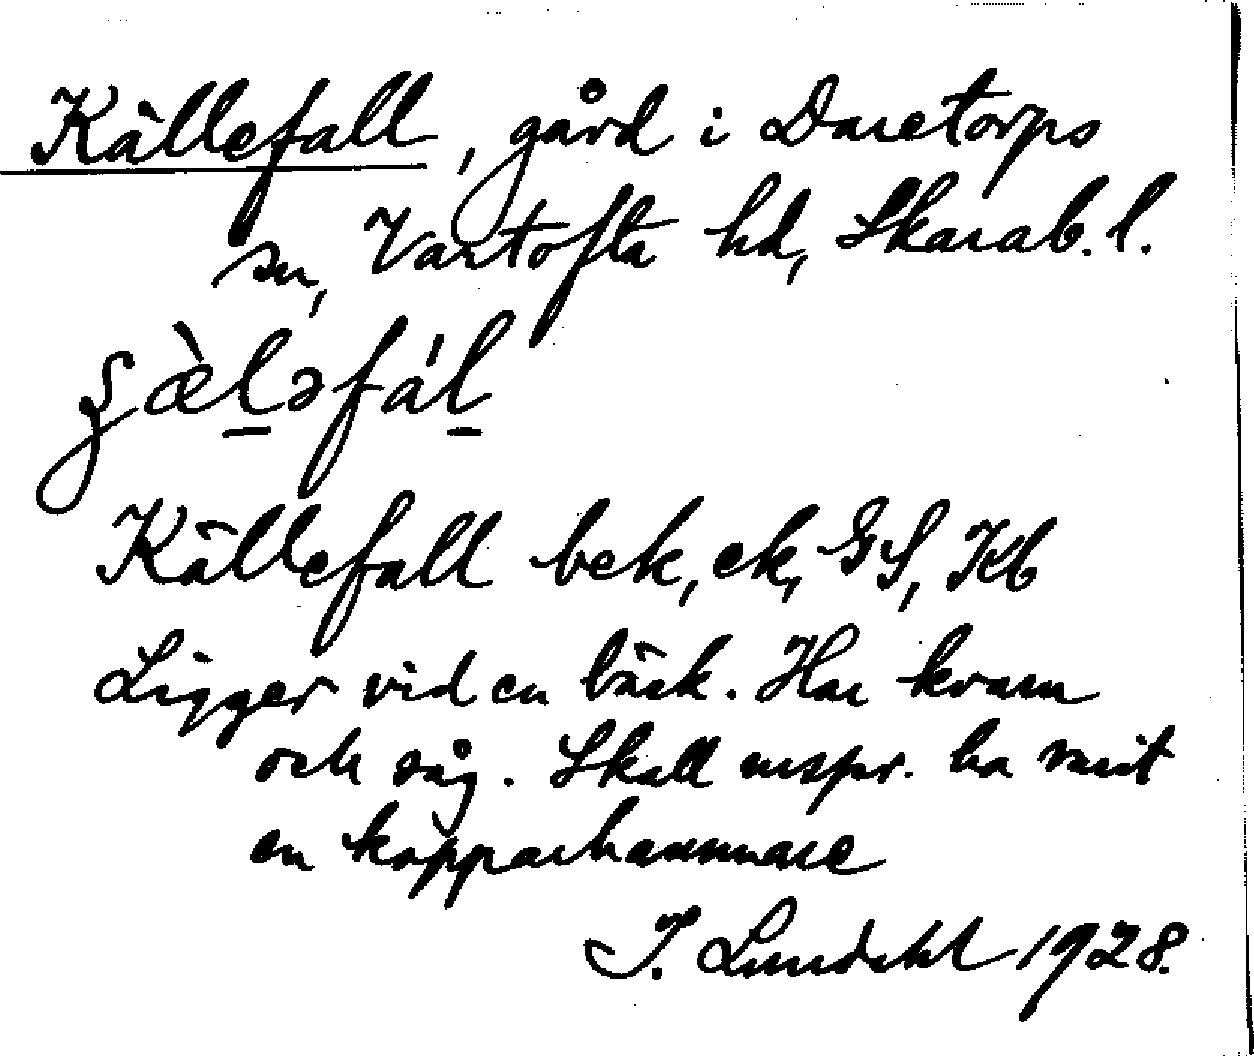 Källefall, gård i Daretorps
sn, Vartofta hd, Skarab. l.
Källefall bek, ek, GS, Kb
Ligger vid en bäck. Har kvarn
och såg. Skall urspr. ha varit
en kopparhammare
I. Lundahl 1928.